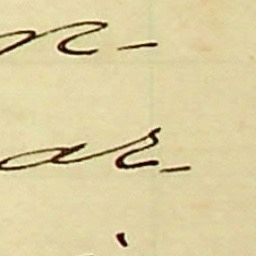 n-
ar-